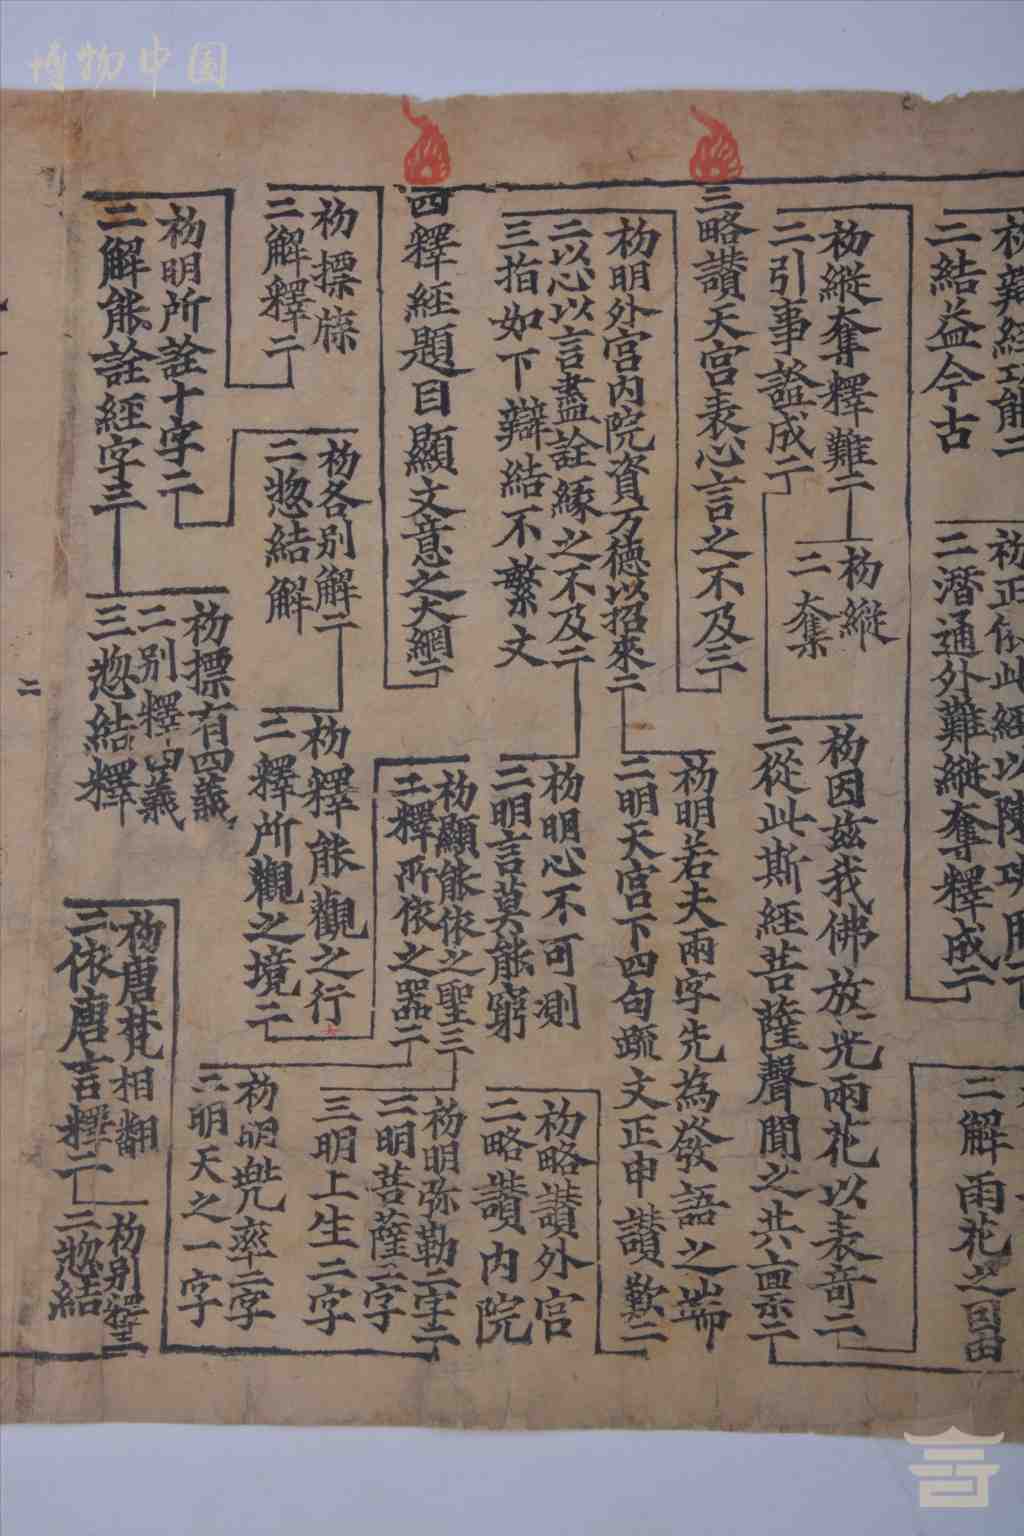 博物中国
二結益今古
二潛通外難縱奪釋成二
二解雨花之因由
初縱奪釋難二
二引事證成二
初縱
二奪
初因茲我佛放光雨花以表奇二
二從此斯經菩薩聲聞之共稟二
三略讚天宮表心言之不及三
初明外宮內院資万德以招來二
二以心以言盡詮緣之不及二
三指如下辯結不繁文
初明若夫兩字先為發語之端
二明天宮下四句疏文正申讚歎二
初明心不可測
二明言莫能窮
初略讚外宮
二略讚內院
四釋經題目顯文意之大綱二
初標牒
二解釋二
初各別解二
二惣結解
初釋能觀之行
二釋所觀之境二
初顯能依之聖三
二釋所依之器二
初明弥勒二字二
二明菩薩二字
三明上生二字
初明兠率二字
二明天之一字
初明所詮十字二
二解能詮經字三
初標有四義
二別釋四義
三惣結釋
初唐梵相翻
二依唐言釋二
初別釋三
二惣結
二